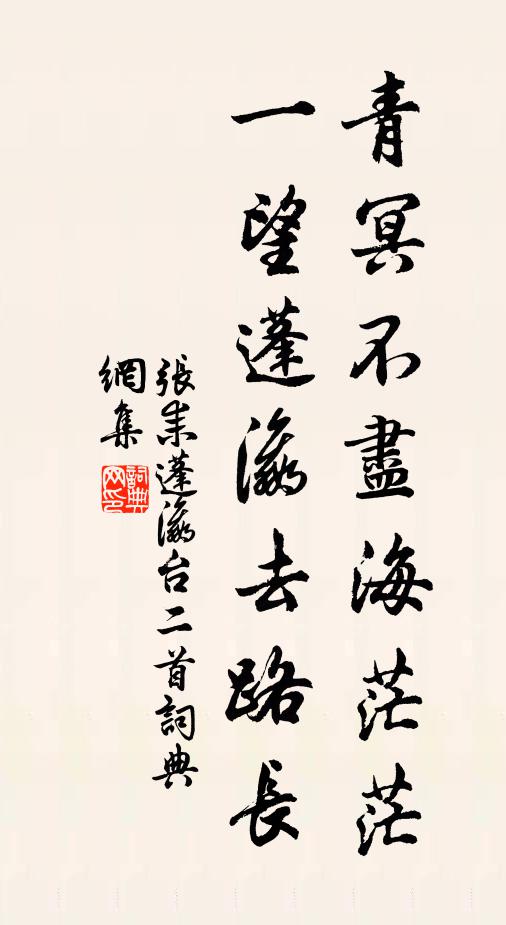 青冥不盡海茫茫
一望蓬瀛去路長
張耒蓬瀛台二首詞典
網集
詞典網印